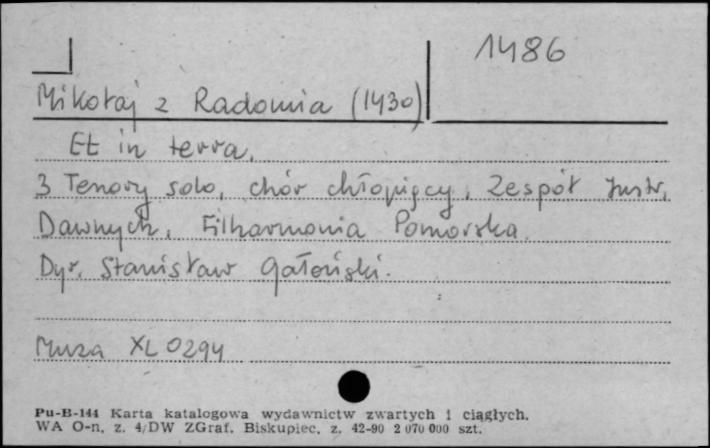 1486
Mikołaj z Radomia (1430)
Et in terra.
3 Tenory solo, chór chłopięcy, Zespół Instr.
Dawnych, Filharmonia Pomorska.
Dyr. Stanisław Gałoński.
Muza XL 0294
Pu-B-144 Karta katalogowa wydawnictw zwartych i ciągłych.
WA O-n, z. 4/DW ZGraf. Biskupiec, z. 42-90 2 070 000 szt.